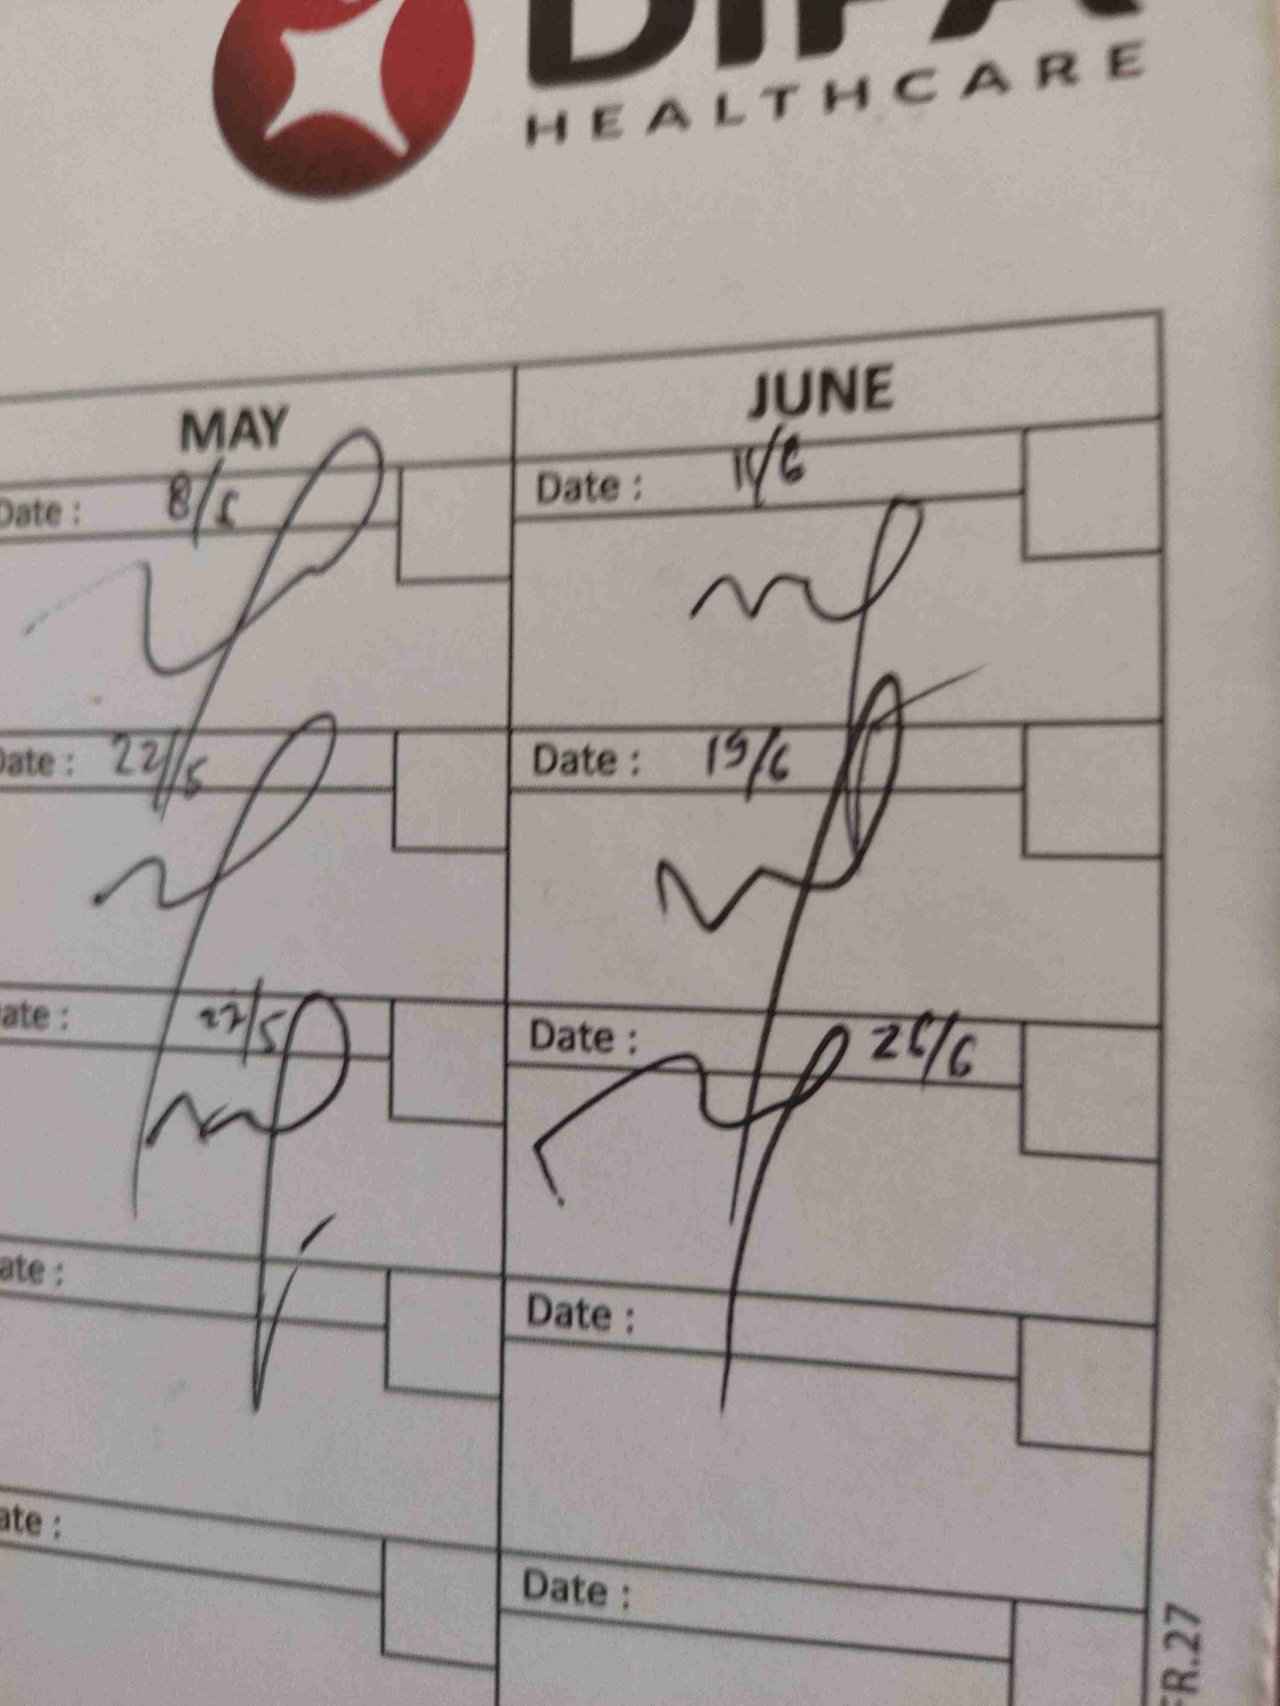 HEALTHCARE
MAY
JUNE
Date : 8/5
Date :
Date : 22/5
Date : 19/6
ate : 27/5
Date : 26/6
ate :
Date :
ate :
Date :
FR.27